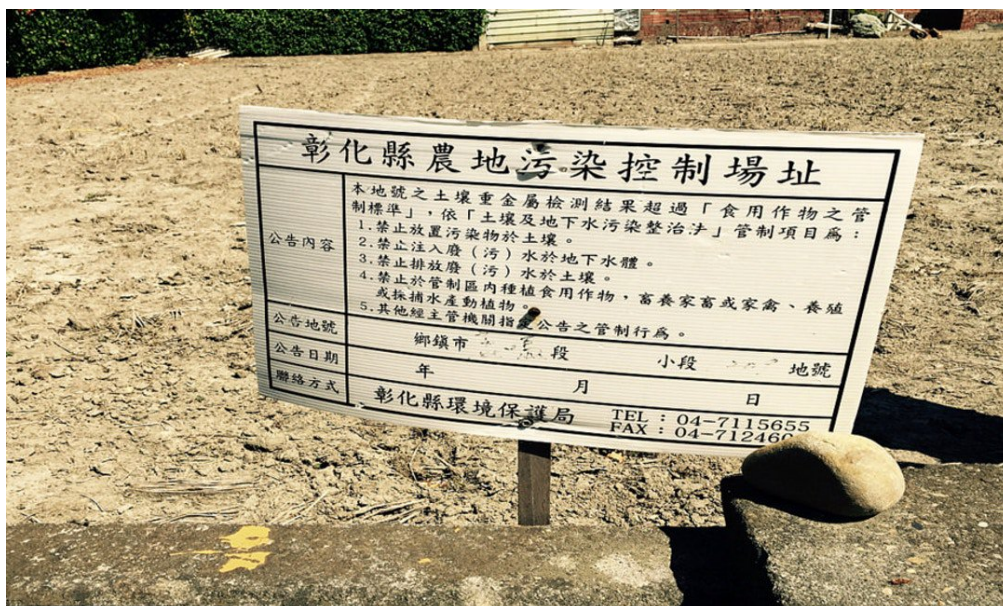 彰化縣農地污染控制場址
公告內容
本地號之土壤重金屬檢測結果超過「食用作物之管
制標準」，依「土壤及地下水污染整治法」管制項目為：
1.禁止放置污染物於土壤。
2.禁止注入廢（污）水於地下水體。
3.禁止排放廢（污）水於土壤。
4.禁止於管制區內種植食用作物，畜養家畜或家禽、養殖
或採捕水產動植物。
5.其他經主管機關指定公告之管制行為。
公告地號 鄉鎮市 段 小段 地號
公告日期 年 月 日
聯絡方式 彰化縣環境保護局 TEL：04-7115655
FAX：04-712460